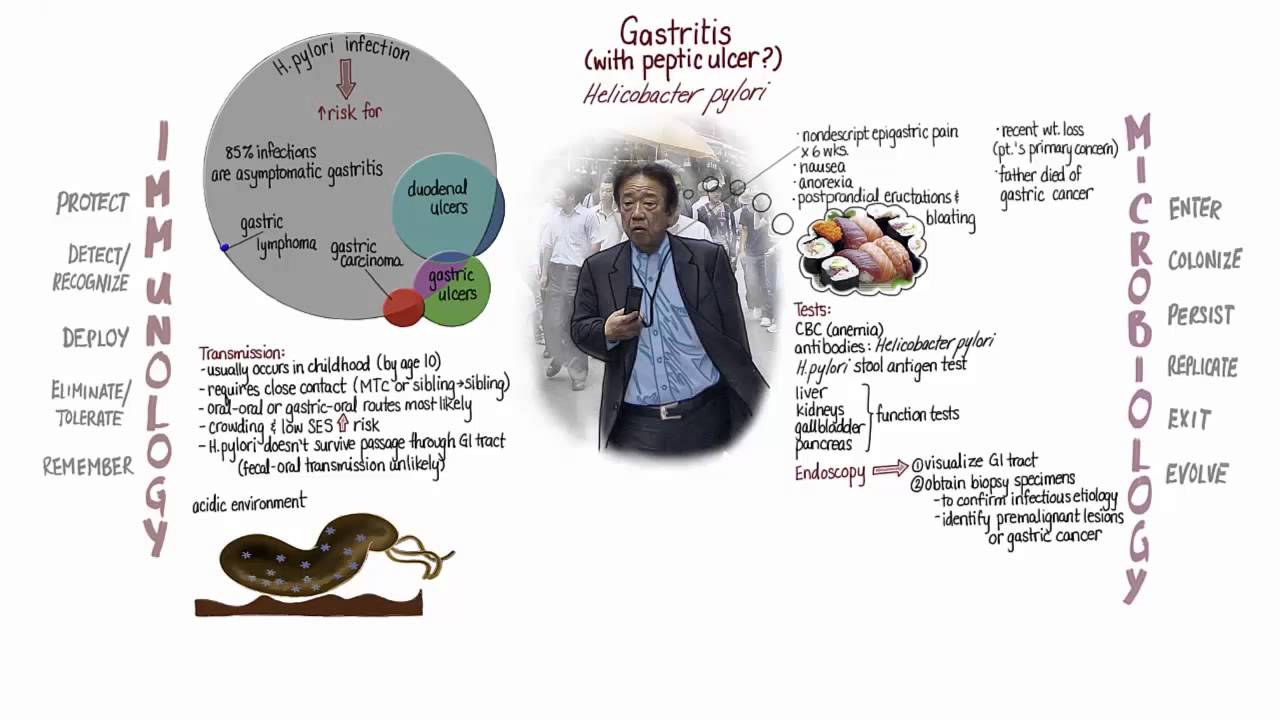 Gastritis
(with peptic ulcer?)
Helicobacter pylori
H. pylori infection
↑risk for
85% infections
are asymptomatic gastritis
duodenal
ulcers
gastric
lymphoma
gastric
carcinoma
gastric
ulcers
Transmission:
-usually occurs in childhood (by age 10)
-requires close contact (MTC or sibling→sibling)
-oral-oral or gastric-oral routes most likely
-crowding & low SES ↑ risk
-H.pylori doesn't survive passage through GI tract
(fecal-oral transmission unlikely)
acidic environment
IMMUNOLOGY
PROTECT
DETECT/
RECOGNIZE
DEPLOY
ELIMINATE/
TOLERATE
REMEMBER
· nondescript epigastric pain
x 6 wks.
· nausea
· anorexia
· postprandial eructations &
bloating
· recent wt. loss
(pt.'s primary concern)
· father died of
gastric cancer
Tests:
CBC (anemia)
antibodies: Helicobacter pylori
H. pylori stool antigen test
liver
kidneys
gallbladder
pancreas
function tests
Endoscopy ⇒ ①visualize GI tract
②obtain biopsy specimens
-to confirm infectious etiology
-identify premalignant lesions
or gastric cancer
MICROBIOLOGY
ENTER
COLONIZE
PERSIST
REPLICATE
EXIT
EVOLVE